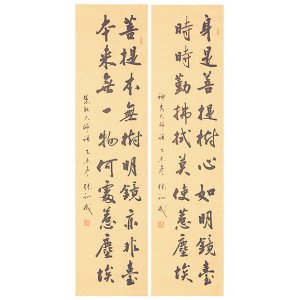 身是菩提樹心如明鏡臺
時時勤拂拭莫使惹塵埃
神秀大師語 乙未冬
菩提本無樹明鏡亦非臺
本來無一物何處惹塵埃
慧能大師語 乙未冬